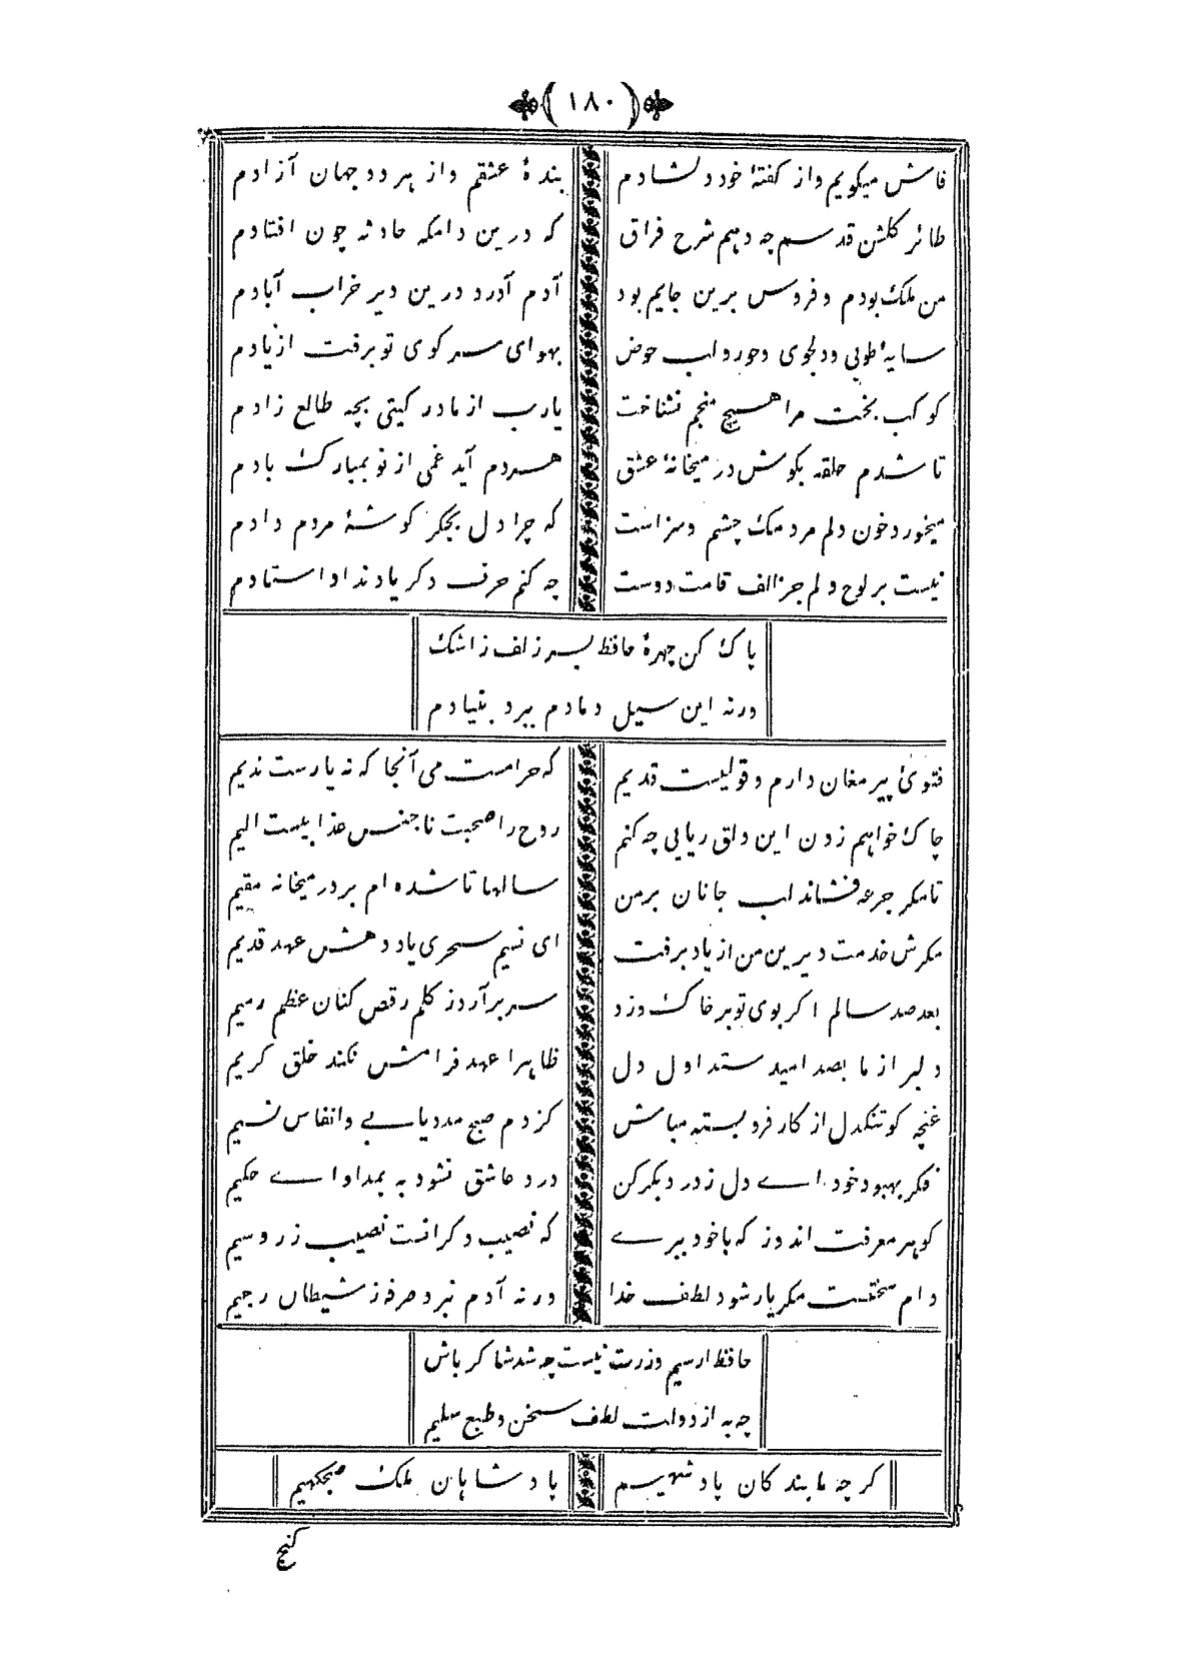 (۱۸۰)
فاش میکویم واز کفتۀ خود دلشادم بندۀ عشقم واز هر دو جهان آزادم
طائر کلشن قدسم چه دهم شرح فراق که درین دامکه حادثه چون افتادم
من ملک بودم وفردوس برین جایم بود آدم آورد درین دیر خراب آبادم
سایۀ طوبی ودلجوی وحور ولب حوض بهوای سر کوی تو برفت ازیادم
کوکب بخت مرا هیچ منجم نشناخت یارب از مادر کیتی بچه طالع زادم
تا شدم حلقه بکوش در میخانۀ عشق هردم آید غمی از نو بمبارک بادم
میخورد خون دلم مردمک چشم وسزاست که چرا دل بجکر کوشۀ مردم دادم
نیست بر لوح دلم جز الف قامت دوست چه کنم حرف دکر یاد نداد استادم
پاک کن چهرۀ حافظ بسر زلف ز اشک
ورنه این سیل دمادم ببرد بنیادم
فتوئ پیر مغان دارم وقولیست قدیم که حرامست می آنجا که نه یارست ندیم
چاک خواهم زدن این دلق ریایی چه کنم روح را صحبت ناجنس عذابیست الیم
تا مکر جرعه فشاند لب جانان بر من سالها تا شده ام بر در میخانه مقیم
مکرش خدمت دیرین من از یاد برفت ای نسیم سحری یاد دهش عهد قدیم
بعد صد سالم اکر بوی تو بر خاک وزد سر بر آرد ز کلم رقص کنان عظم رمیم
دلبر از ما بصد امید ستد اول دل ظاهرا عهد فرامش نکند خلق کریم
غنچه کو تنکدل از کار فرو بسته مباش کز دم صبح مدد یابے وانفاس نسیم
فکر بهبود خود اے دل ز در دیکر کن درد عاشق نشود به بمداواے حکیم
کوهر معرفت اندوز که با خود ببرے که نصیب دکرانست نصیب زر وسیم
دام سختست مکر یار شود لطف خدا ورنه آدم نبرد صرفه ز شیطان رجیم
حافظ ارسیم وزرت نیست چه شد شاکر باش
چه به از دولت لطف سخن وطبع سلیم
کرچه ما بندکان پادشهیم پادشاهان ملک صبحکهیم
کنج